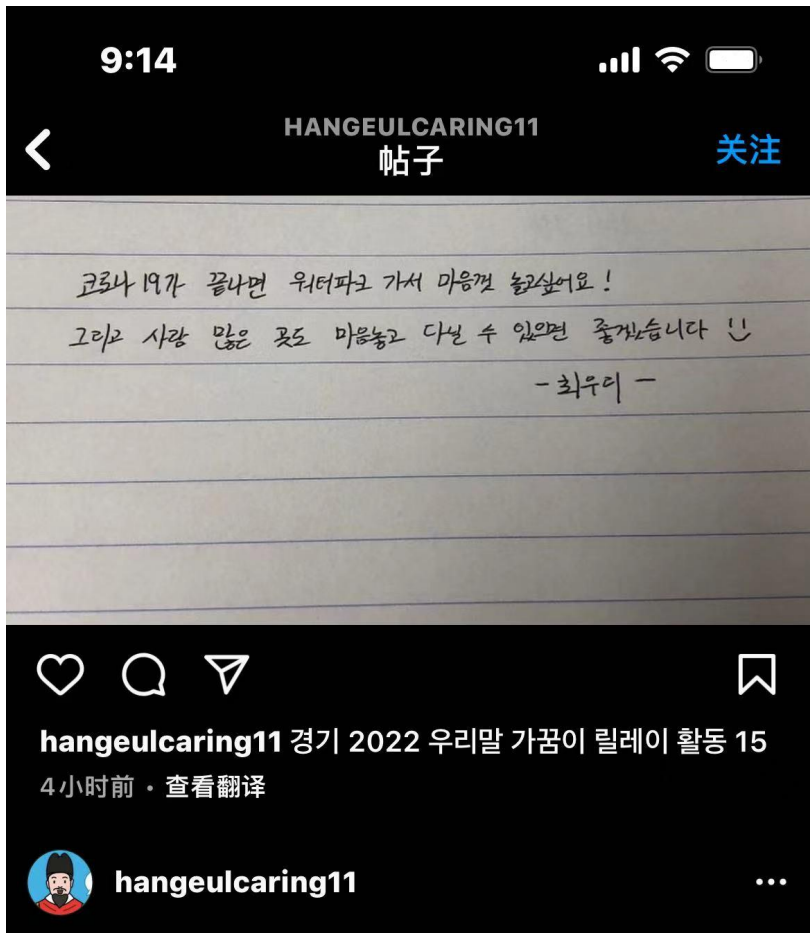 9:14
HANGEULCARING11
帖子
关注
코로나19가 끝나면 워터파크 가서 마음껏 놀고싶어요!
그리고 사람 많은 곳도 마음놓고 다닐 수 있으면 좋겠습니다
- 최우디 -
hangeulcaring11 경기 2022 우리말 가꿈이 릴레이 활동 15
4小时前 • 查看翻译
hangeulcaring11